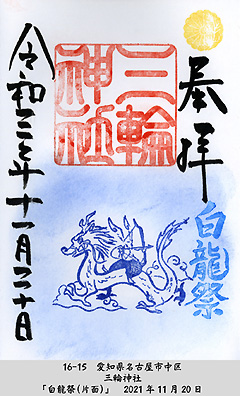 奉拝
三輪神社
白龍祭
令和三年十一月二十日
16-15 愛知県名古屋市中区
三輪神社
「白龍祭(片面)」 2021年11月20日